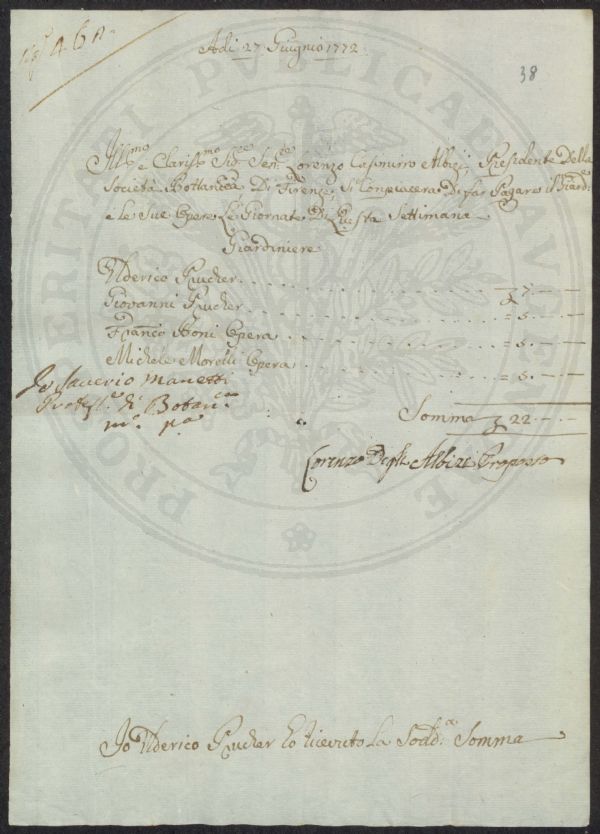 46
Adi 27 Giugno 1772
38
Ill.mo e Clariss.mo Sig.re Sen.re Lorenzo Casimirro Albizi Presidente Della
Società Bottanica Di Firenze, Si Conpiacera Di far Pagare il Giard.e
e le Sue Opere Le Giornate Di Questa Settimana
Giardiniere
Ulderico Prucher . . . . 7 . —
Giovanni Prucher . . . . = 5 . —
Franco Boni Opera . . . . = 5 . —
Michele Morelli Opera . . . . = 5 . —
Io Saverio Manetti
Profess.e di Botan.ca
m.o p.a
Somma 22 . —
Lorenzo Degli Albizi Proposto
Io Ulderico Prucher ho ricevuto La Sod.a Somma
PROSPERITATI PUBLICAE AUGENDAE